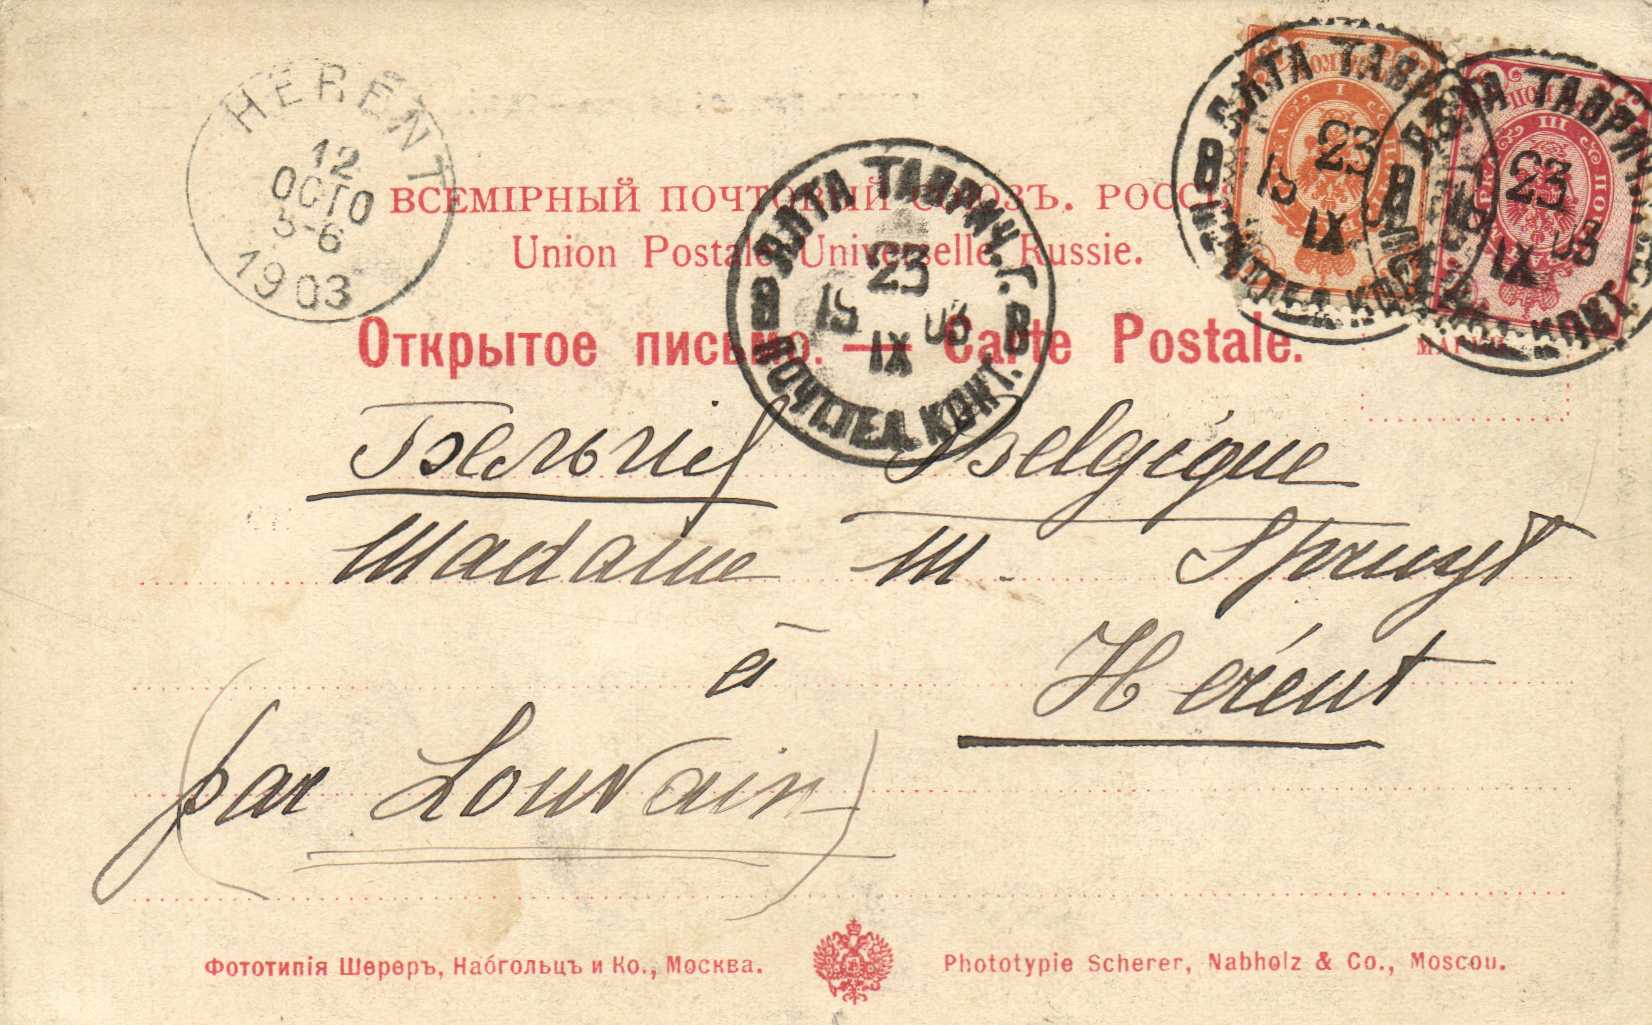 HERENT
12
OCTO
5-6
1903
ВСЕМІРНЫЙ ПОЧТОВЫЙ СОЮЗЪ. РОССІЯ
Union Postale Universelle Russie.
Открытое письмо. — Carte Postale.
ЯЛТА ТАВРИЧ. Г.
23
19 03
IX
В В
ПОЧТ.ТЕЛ. КОНТ.
ЯЛТА ТАВРИЧ
23
19
IX
В В
ПОЧТ.ТЕЛ. КОНТ
ЯЛТА ТАВРИЧ
23
03
IX
КОНТ.
I
III
Бельгія Belgique
Madame M. Spruyt
à Hérent
(par Louvain)
Фототипія Шереръ, Набгольцъ и Ко., Москва.
Phototypie Scherer, Nabholz & Co., Moscou.